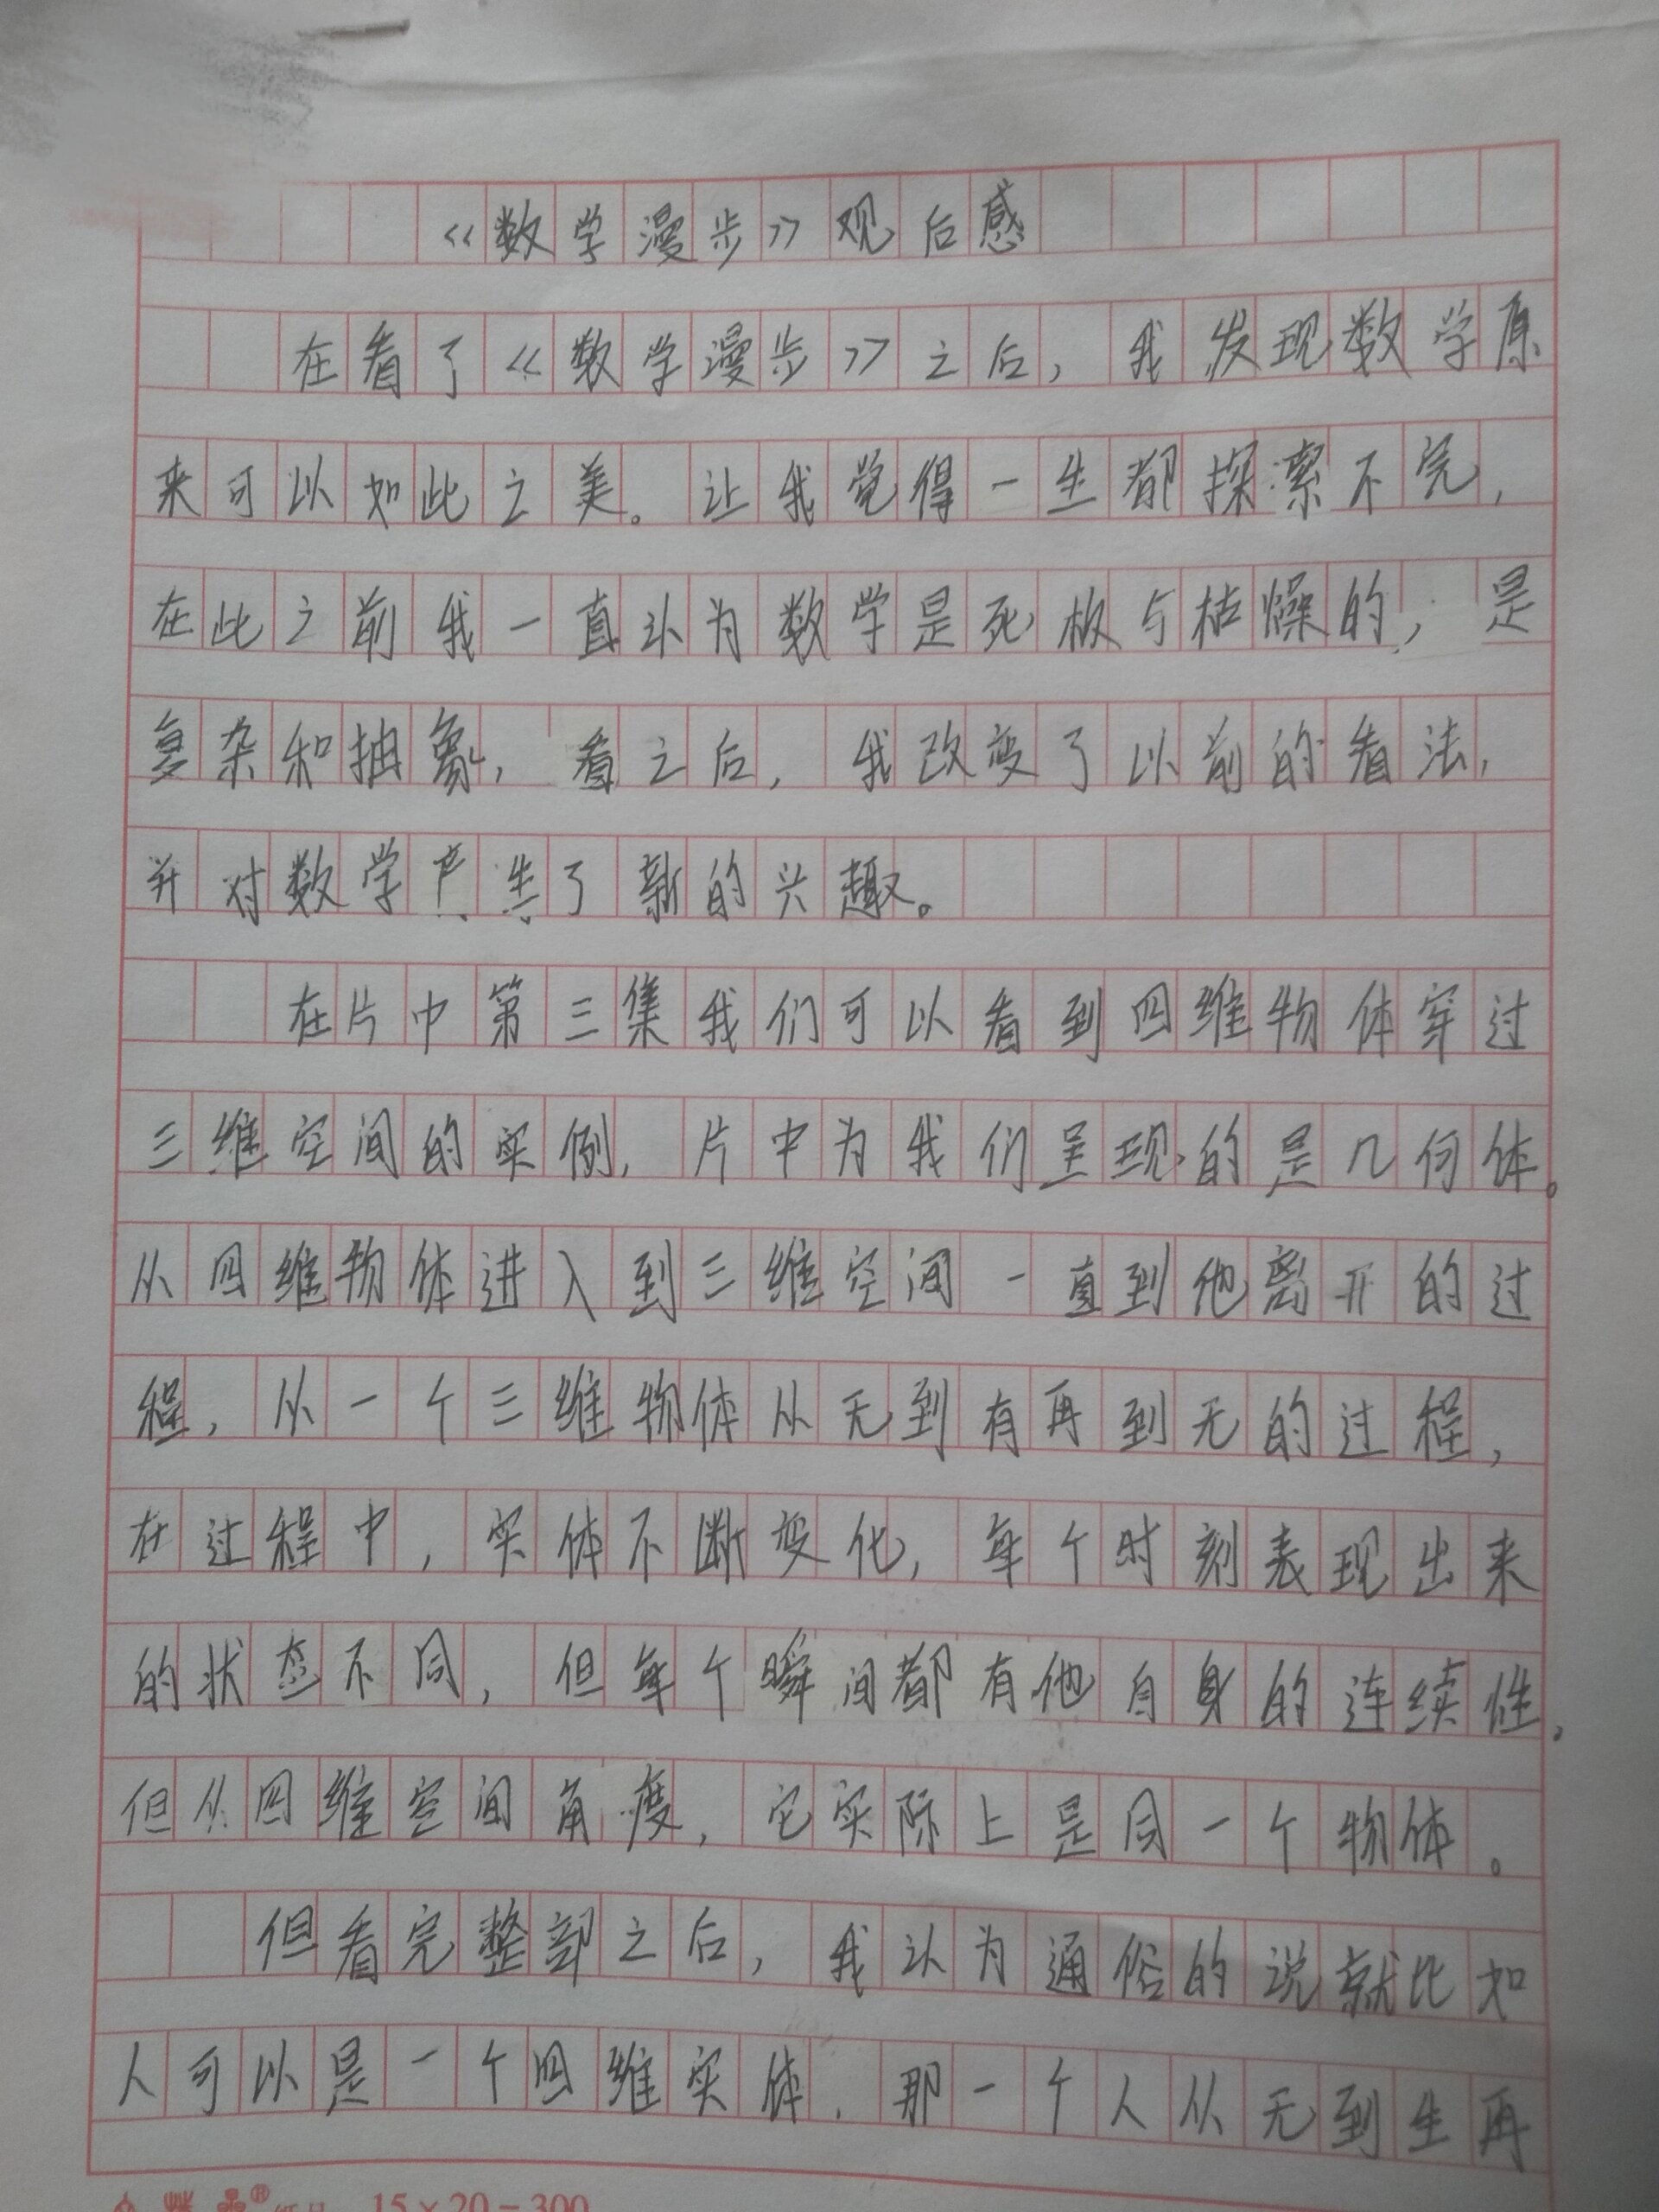 《数学漫步》观后感
在看了《数学漫步》之后，我发现数学原
来可以如此之美。让我觉得一生都探索不完，
在此之前我一直认为数学是死板与枯燥的，是
复杂和抽象，看之后，我改变了以前的看法，
并对数学产生了新的兴趣。
在片中第三集我们可以看到四维物体穿过
三维空间的实例，片中为我们呈现的是几何体。
从四维物体进入到三维空间一直到他离开的过
程，从一个三维物体从无到有再到无的过程，
在过程中，实体不断变化，每个时刻表现出来
的状态不同，但每个瞬间都有他自身的连续性，
但从四维空间角度，它实际上是同一个物体。
但看完整部之后，我认为通俗的说就比如
人可以是一个四维实体，那一个人从无到生再
15×20=300